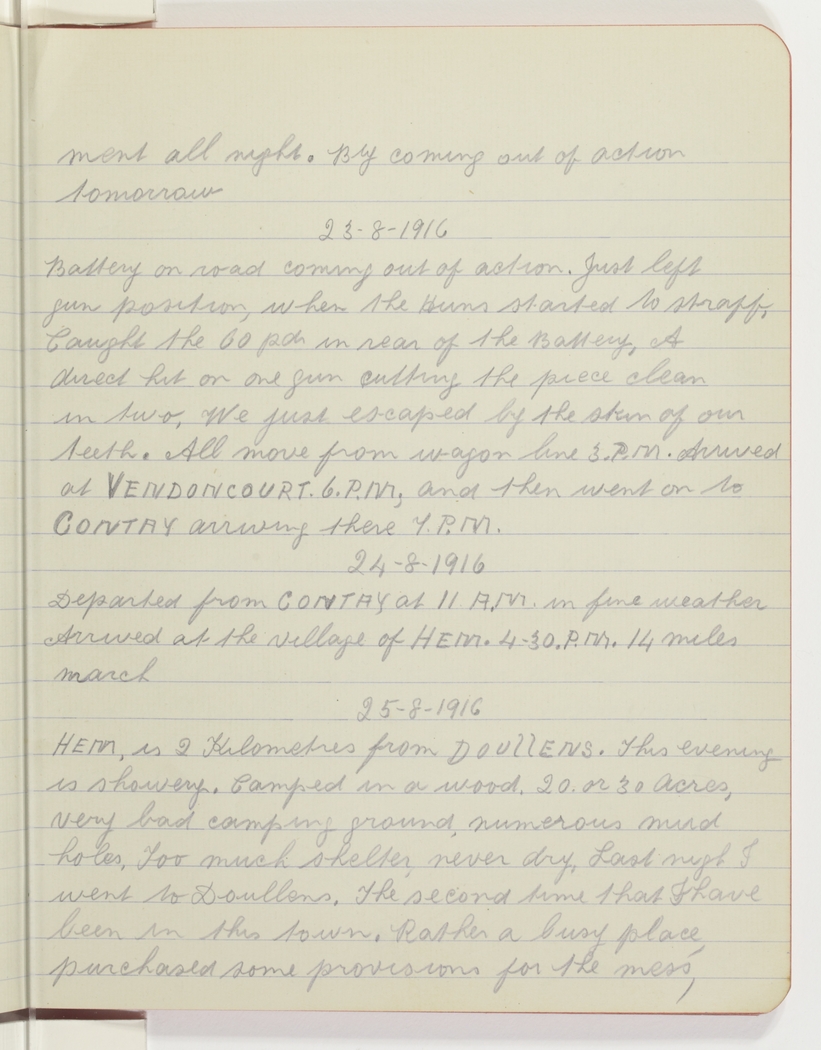 ment all night. Bty coming out of action
tomorrow
23-8-1916
Battery on road coming out of action. Just left
gun position, when the Huns started to straff,
Caught the 60 pdr in rear of the Battery, A
direct hit on one gun cutting the piece clean
in two, We just escaped by the skin of our
teeth. All move from wagon line 3.P.M. Arrived
at VENDONCOURT. 6.P.M, and then went on to
CONTAY arriving there 7.P.M.
24-8-1916
Departed from CONTAY at 11 A.M. in fine weather
Arrived at the village of HEM. 4-30.P.M. 14 miles
march
25-8-1916
HEM, is 2 Kilometres from DOUllENS. This evening
is showery. Camped in a wood. 20. or 30 Acres,
very bad camping ground, numerous mud
holes, Too much shelter, never dry, Last nigt I
went to Doullens. The second time that I have
been in this town. Rather a busy place,
purchased some provisions for the mess,